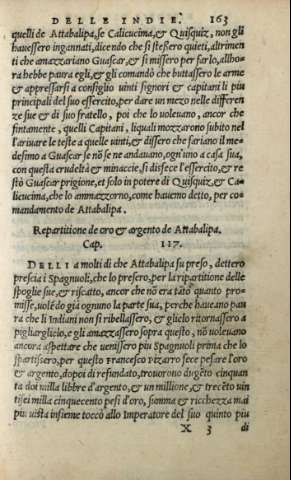 DELLE INDIE. 163
quelli de Attabalipa, se Calicucima, & Quisquiz, non gli
hauessero ingannati, dicendo che si stessero quieti, altrimen
ti che amazzariano Guascar, & si missero per farlo, allho-
ra hebbe paura egli, & gli comandò che buttassero le arme
& appressarsi a consiglio uinti signori & capitani li piu
principali del suo essercito, per dare un mezo nelle differen
ze sue & di suo fratello, poi che lo uoleuano, ancor che
fintamente, quelli Capitani, liquali mozzarono subito nel
l'ariuare le teste a quelle uinti, & dissero che fariano il me-
desimo a Guascar se nõ se ne andauano, ogni uno a casa sua,
con questa crudeltà & minaccie, si disfece l'essercito, & re
stò Guascar prigione, et solo in potere di Quisquiz, & Ca-
licucima, che lo ammazzorno, come hauemo detto, per co-
mandamento de Attabalipa.
Repartitione de oro & argento de Attabalipa.
Cap. 117.
DELLI a molti di che Attabalipa fu preso, dettero
prescia i Spagnuoli, che lo presero, per la ripartitione delle
spoglie sue, & riscatto, ancor che nõ era tãto quanto pro-
misse, uolẽdo già ognuno la parte sua, perche haueano pau
ra che li Indiani non si ribellassero, & glielo ritornassero a
pigliarglicio, & gli amazzassero sopra questo, nõ uoleuano
ancora aspettare che uenissero piu Spagnuoli prima che lo
spartissero, per questo Francesco Pizarro fece pesare l'oro
& argento, dopoi di refundato, trouorono dugẽto cinquan
ta doi milla libbre d'argento, & un millione, & trecẽto uin
ti sei milla cinquecento pesi d'oro, somma & ricchezza mai
piu uista insieme toccò allo Imperatore del suo quinto piu
X 3 di